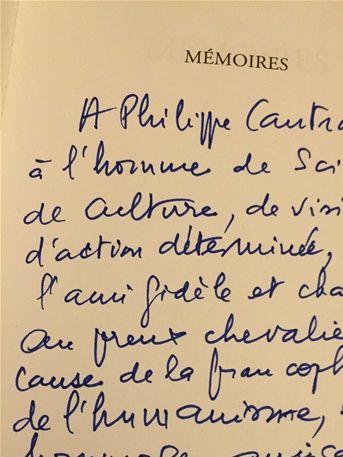 MÉMOIRES
A Philippe
à l'homme de Sci
de culture, de visi
d'action déterminée,
l'ami fidèle et cha
au preux chevalie
cause de la francoph
de l'humanisme,